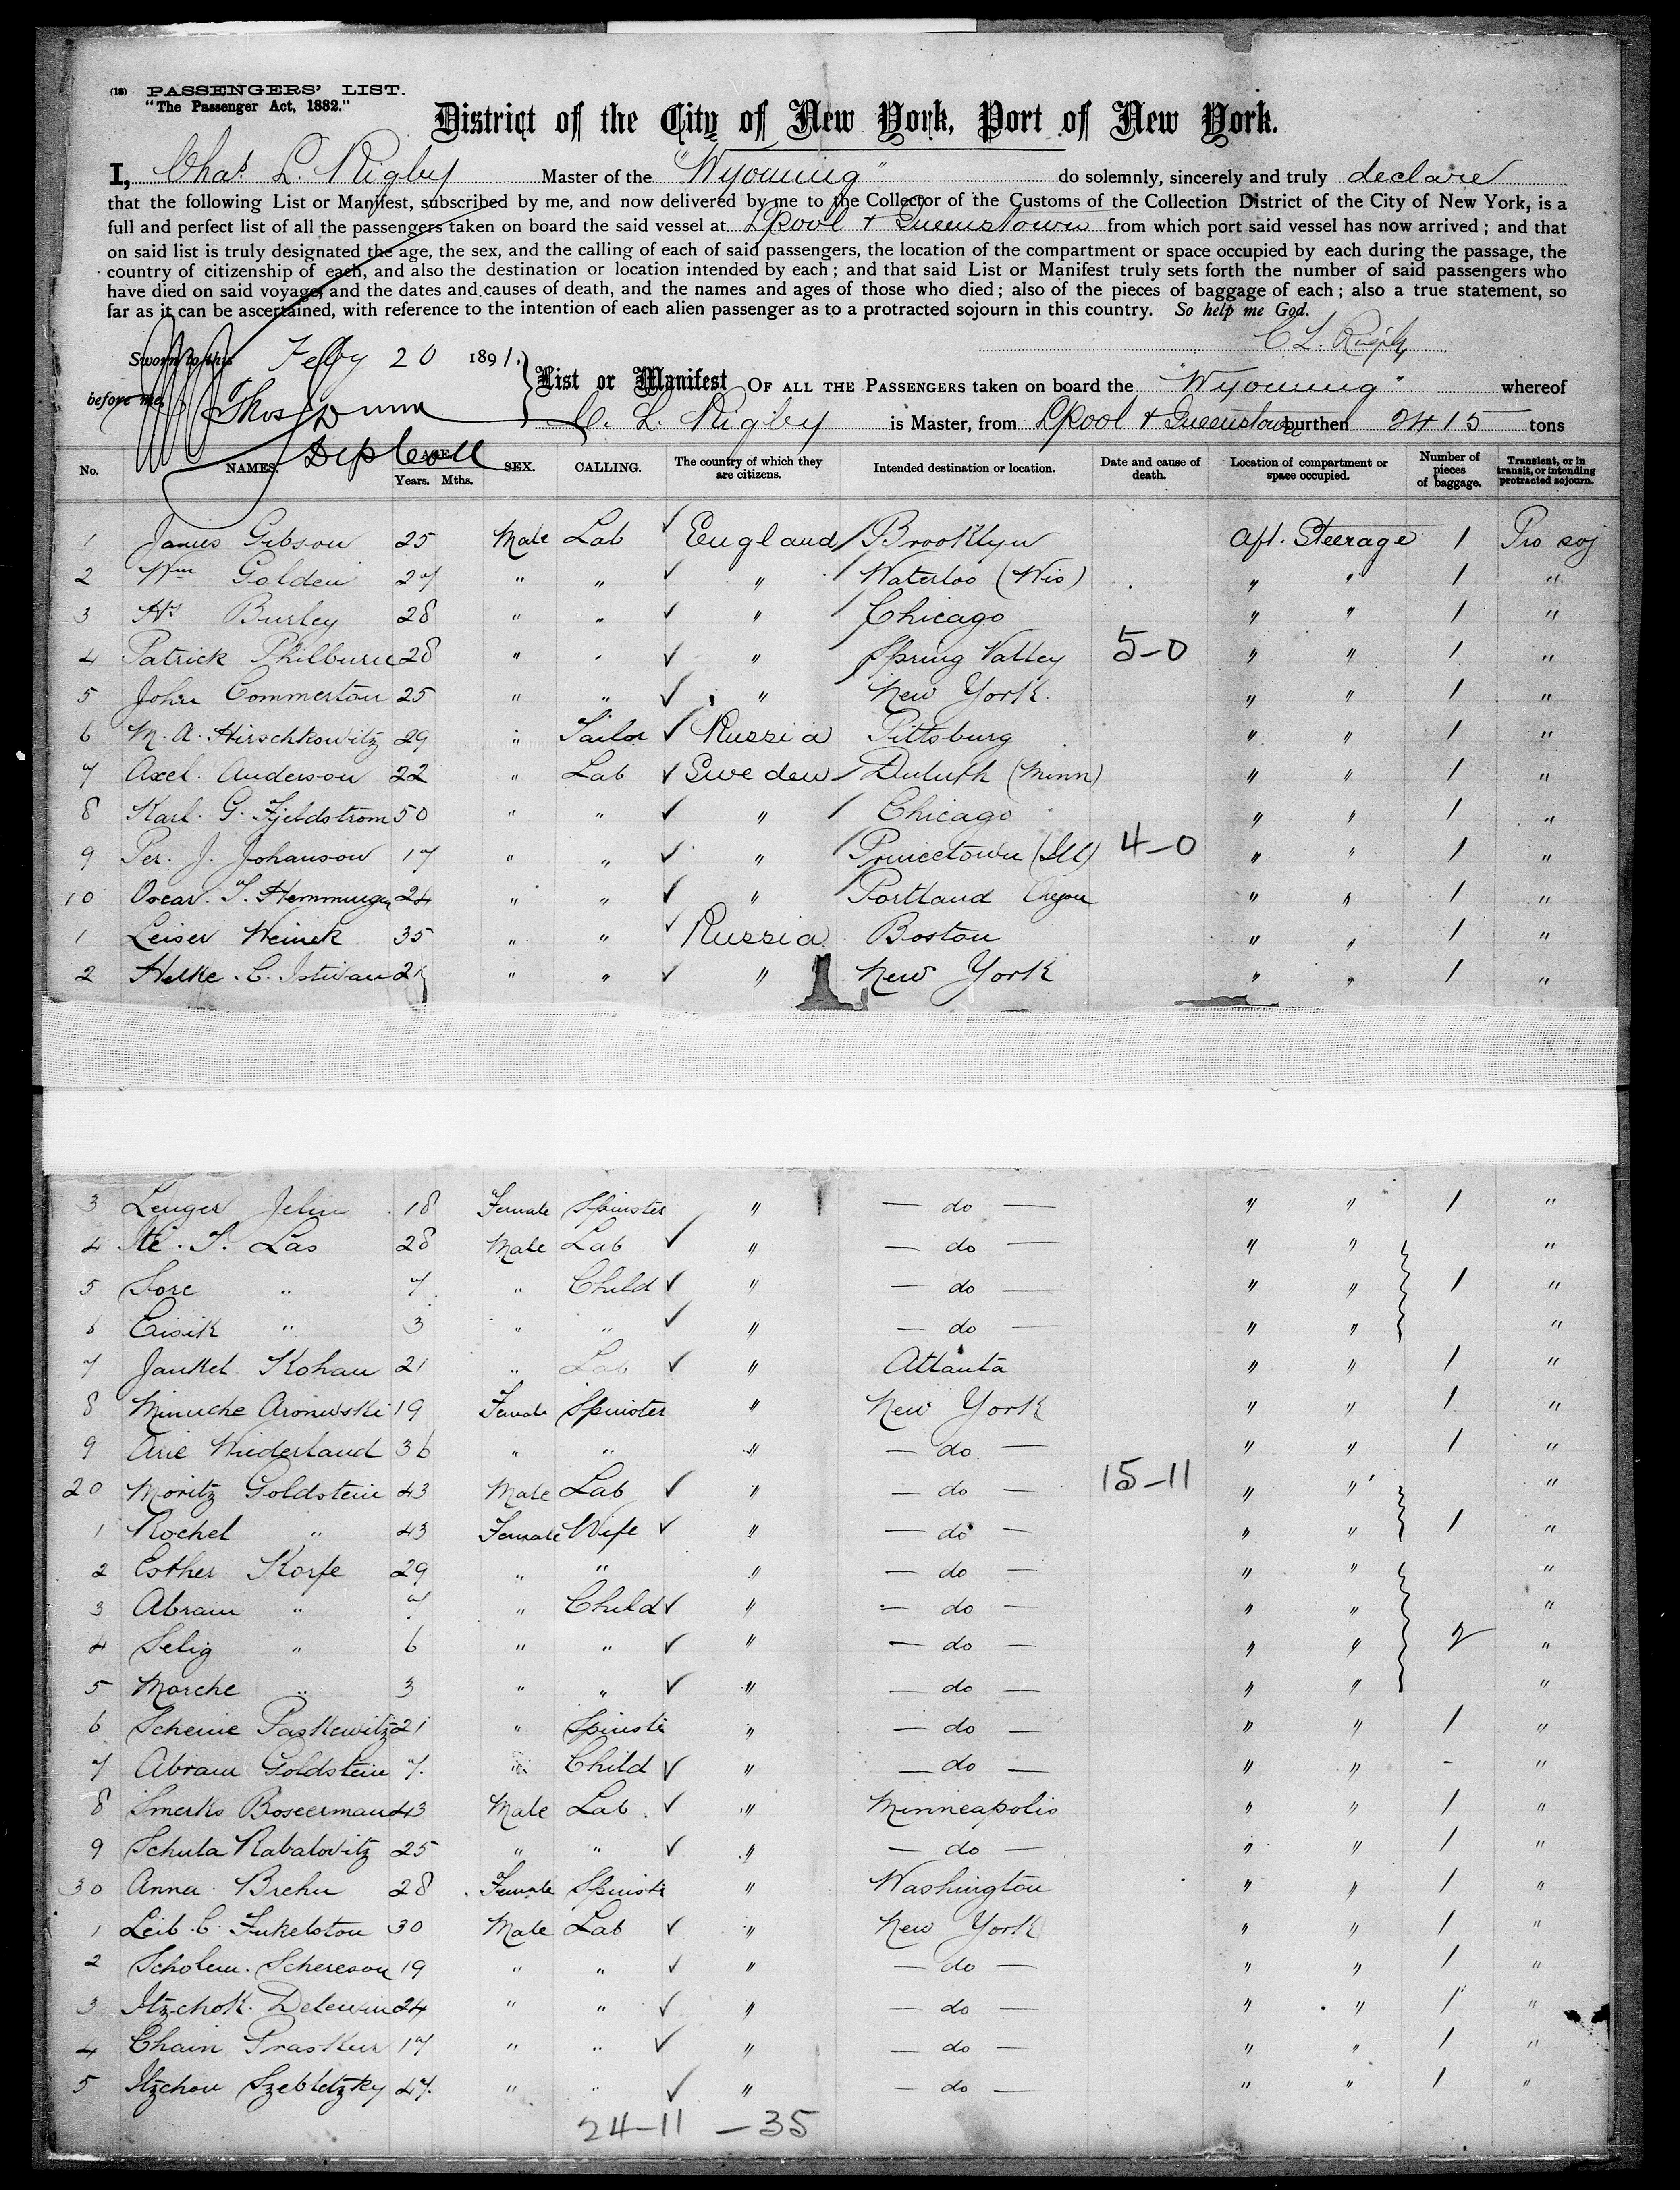 (18) PASSENGERS' LIST.
"The Passenger Act, 1882."
District of the City of New York, Port of New York.
I, Chas. L. Rigby Master of the "Wyoming" do solemnly, sincerely and truly declare
that the following List or Manifest, subscribed by me, and now delivered by me to the Collector of the Customs of the Collection District of the City of New York, is a
full and perfect list of all the passengers taken on board the said vessel at Lpool & Queenstown from which port said vessel has now arrived; and that
on said list is truly designated the age, the sex, and the calling of each of said passengers, the location of the compartment or space occupied by each during the passage, the
country of citizenship of each, and also the destination or location intended by each; and that said List or Manifest truly sets forth the number of said passengers who
have died on said voyage, and the dates and causes of death, and the names and ages of those who died; also of the pieces of baggage of each; also a true statement, so
far as it can be ascertained, with reference to the intention of each alien passenger as to a protracted sojourn in this country. So help me God.
C. L. Rigby
Sworn to this Feby 20 1891.
before me, Thos Dunn
Dep Coll
List or Manifest OF ALL THE PASSENGERS taken on board the "Wyoming" whereof
C. L. Rigby is Master, from Lpool & Queenstown burthen 2415 tons
No. NAMES. AGE. Years. Mths. SEX. CALLING. The country of which they are citizens. Intended destination or location. Date and cause of death. Location of compartment or space occupied. Number of pieces of baggage. Transient, or in transit, or intending protracted sojourn.
1 James Gibson 25 Male Lab ✓ England / Brooklyn Aft. Steerage 1 Pro soj
2 Wm Golden 27 " " ✓ " / Waterloo (Wis) " " 1 "
3 Hy Burley 28 " " ✓ " / Chicago " " 1 "
4 Patrick Philburn 28 " " ✓ " Spring Valley 5-0 " " 1 "
5 John Commerton 25 " " ✓ " New York " " 1 "
6 M. A. Hirschkowitz 29 " Tailor ✓ Russia Pittsburg " " 1 "
7 Axel. Anderson 22 " Lab ✓ Sweden / Duluth (Minn) " " 1 "
8 Karl. G. Fjeldstrom 50 " " ✓ " / Chicago " " 1 "
9 Per. J. Johanson 17 " " ✓ " / Princetown (Ill) 4-0 " " 1 "
10 Oscar. T. 24 " " ✓ " / Portland Oregon " " 1 "
1 Leiser Weinek 35 " " ✓ Russia Boston " " 1 "
2 Helke. C. Istwan " " ✓ " New York " " 1 "
3 Lenger Jelin 18 Female Spinster " — do — " " 1 "
4 T. Las 28 Male Lab ✓ " — do — " " "
5 Sore " 7 " Child ✓ " — do — " " 1 "
6 Eisik " 3 " " ✓ " — do — " " "
7 Jankel Kohan 21 " Lab ✓ " Atlanta " " 1 "
8 Minuche Aronwski 19 Female Spinster " New York " " 1 "
9 Arie Niederland 36 " " " — do — " " 1 "
20 Moritz Goldstein 43 Male Lab ✓ " — do — 15-11 " " "
1 Rochel " 43 Female Wife ✓ " — do — " " 1 "
2 Esther Korfe 29 " " " — do — " " "
3 Abram " 7 " Child ✓ " — do — " " "
4 Selig " 6 " " ✓ " — do — " " 2 "
5 Morche " 3 " " ✓ " — do — " " "
6 Scheine Paskewitz 21 " Spinste " — do — " " 1 "
7 Abram Goldstein 7 " Child ✓ " — do — " " - "
8 Smerko Boseerman 43 Male Lab ✓ " Minneapolis " " 1 "
9 Schula Rabalovitz 25 " " ✓ " — do — " " 1 "
30 Anna Brehn 28 Female Spinste " Washington " " 1 "
1 Leib. C. Fukelston 30 Male Lab ✓ " New York " " 1 "
2 Scholem. Schereson 19 " " ✓ " — do — " " 1 "
3 Itzchok. Delewin 24 " " ✓ " — do — " " 1 "
4 Chain Praskur 17 " " ✓ " — do — " " 1 "
5 Itzchou Szebletzky 47 " " ✓ " — do — " " 1 "
24-11 - 35